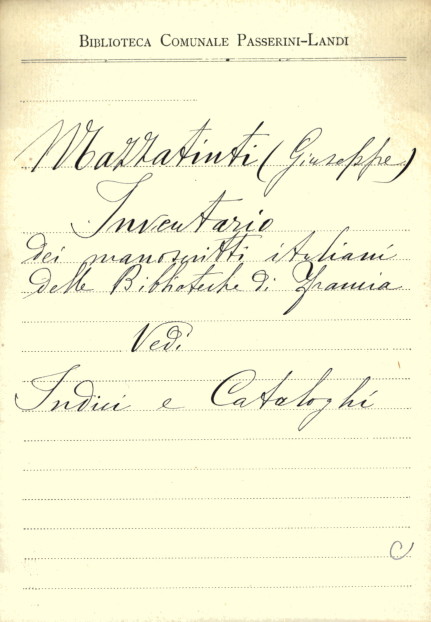 BIBLIOTECA COMUNALE PASSERINI-LANDI
Mazzatinti (Giuseppe)
Inventario
dei manoscritti italiani
delle Biblioteche di Francia
Vedi
Indici e Cataloghi
C